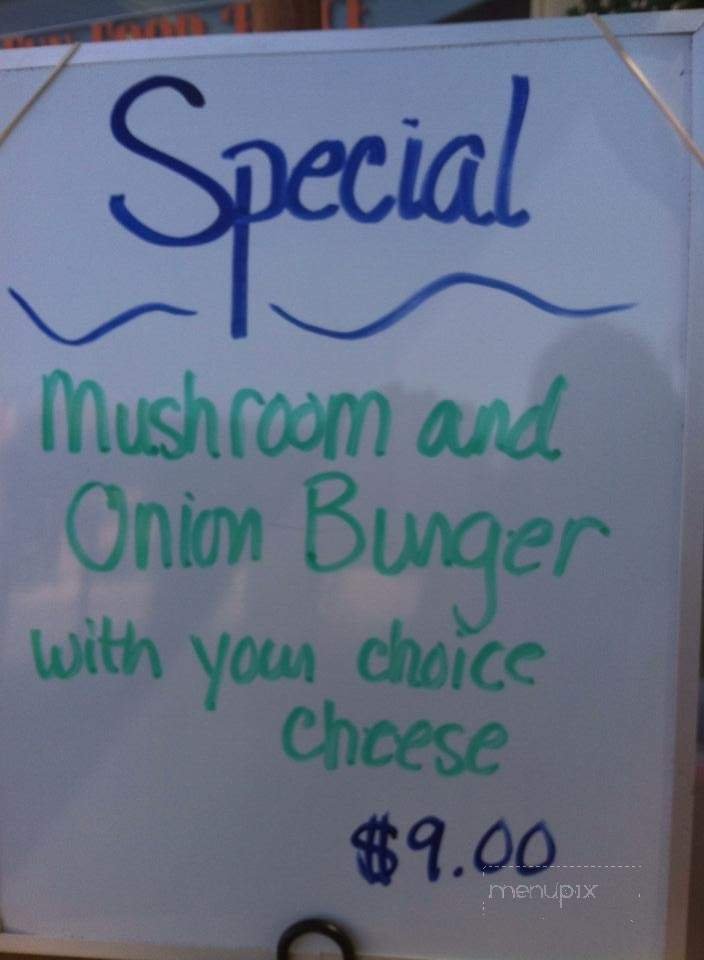 Special
Mushroom and
Onion Burger
with your choice
cheese
$9.00
menupix